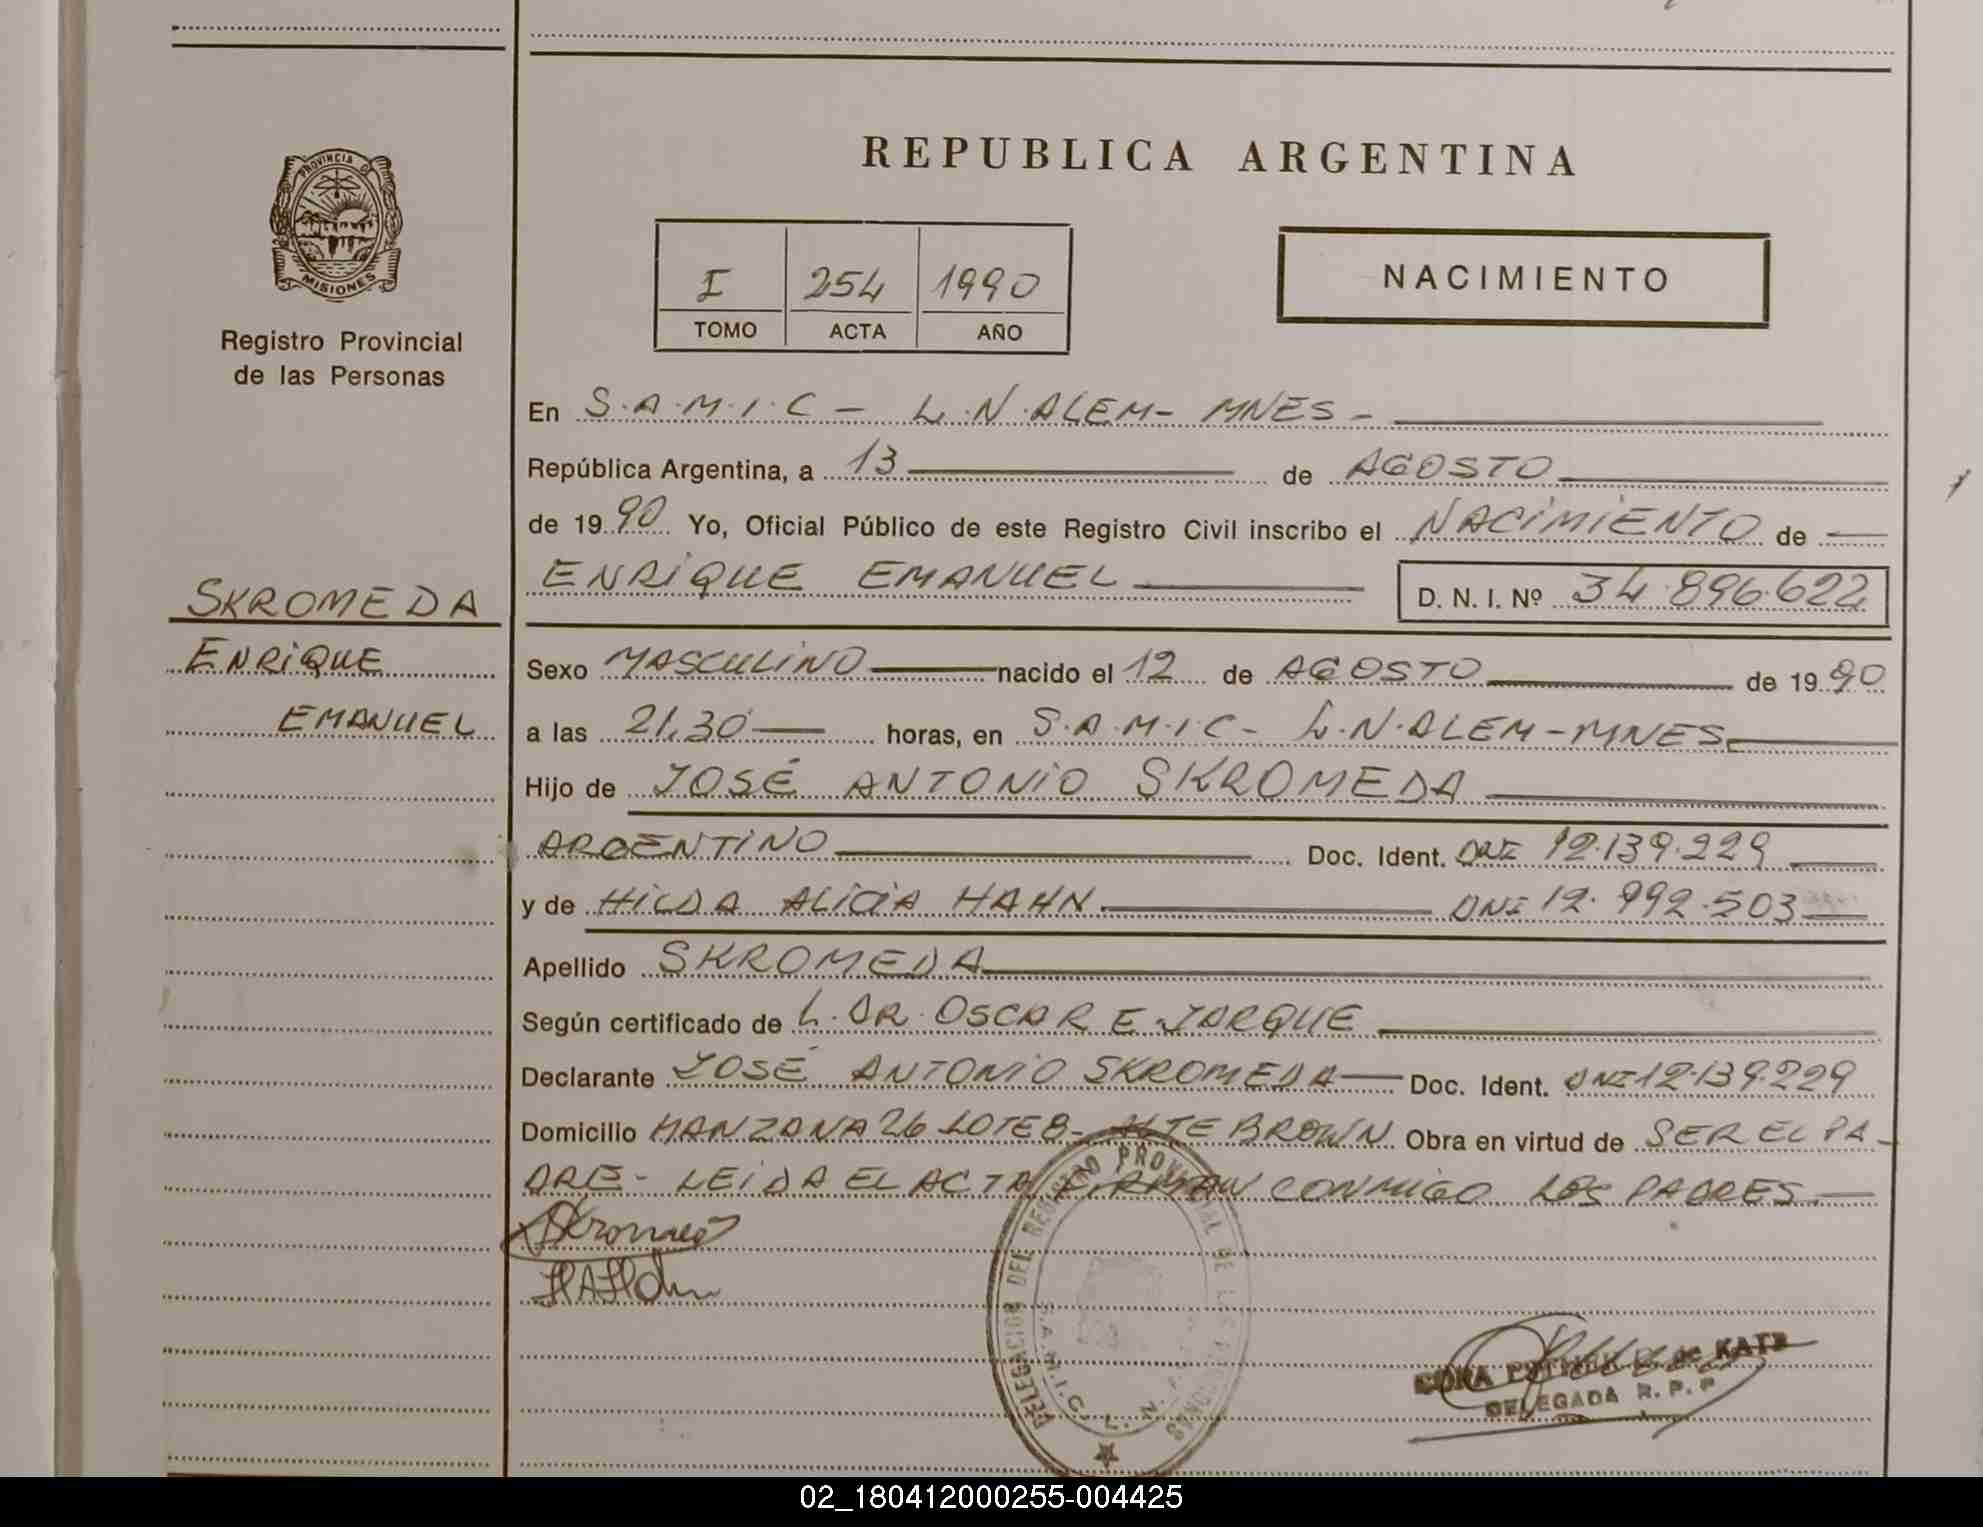 REPUBLICA ARGENTINA
PROVINCIA DE
MISIONES
Registro Provincial
de las Personas
I 254 1990
TOMO ACTA AÑO
NACIMIENTO
En S.A.M.I.C - L.N.ALEM - MNES -
República Argentina, a 13 de AGOSTO
de 1990 Yo, Oficial Público de este Registro Civil inscribo el NACIMIENTO de
ENRIQUE EMANUEL D. N. I. Nº 34.896.622
SKROMEDA
ENRIQUE
EMANUEL
Sexo MASCULINO nacido el 12 de AGOSTO de 1990
a las 21.30 horas, en S.A.M.I.C - L.N.ALEM - MNES
Hijo de JOSÉ ANTONIO SKROMEDA
ARGENTINO Doc. Ident. DNI 12.139.229
y de HILDA ALICIA HAHN DNI 12.992.503
Apellido SKROMEDA
Según certificado de L. DR. OSCAR E. JARQUE
Declarante JOSÉ ANTONIO SKROMEDA Doc. Ident. DNI 12.139.229
Domicilio MANZANA 26 LOTE 8 - ALTE BROWN Obra en virtud de SER EL PA-
DRE - LEIDA EL ACTA FIRMAN CONMIGO LOS PADRES
DELEGACION DEL REGISTRO PROVINCIAL DE LAS PERSONAS
S.A.M.I.C. L. N.
de KATZ
DELEGADA R. P. P.
02_180412000255-004425